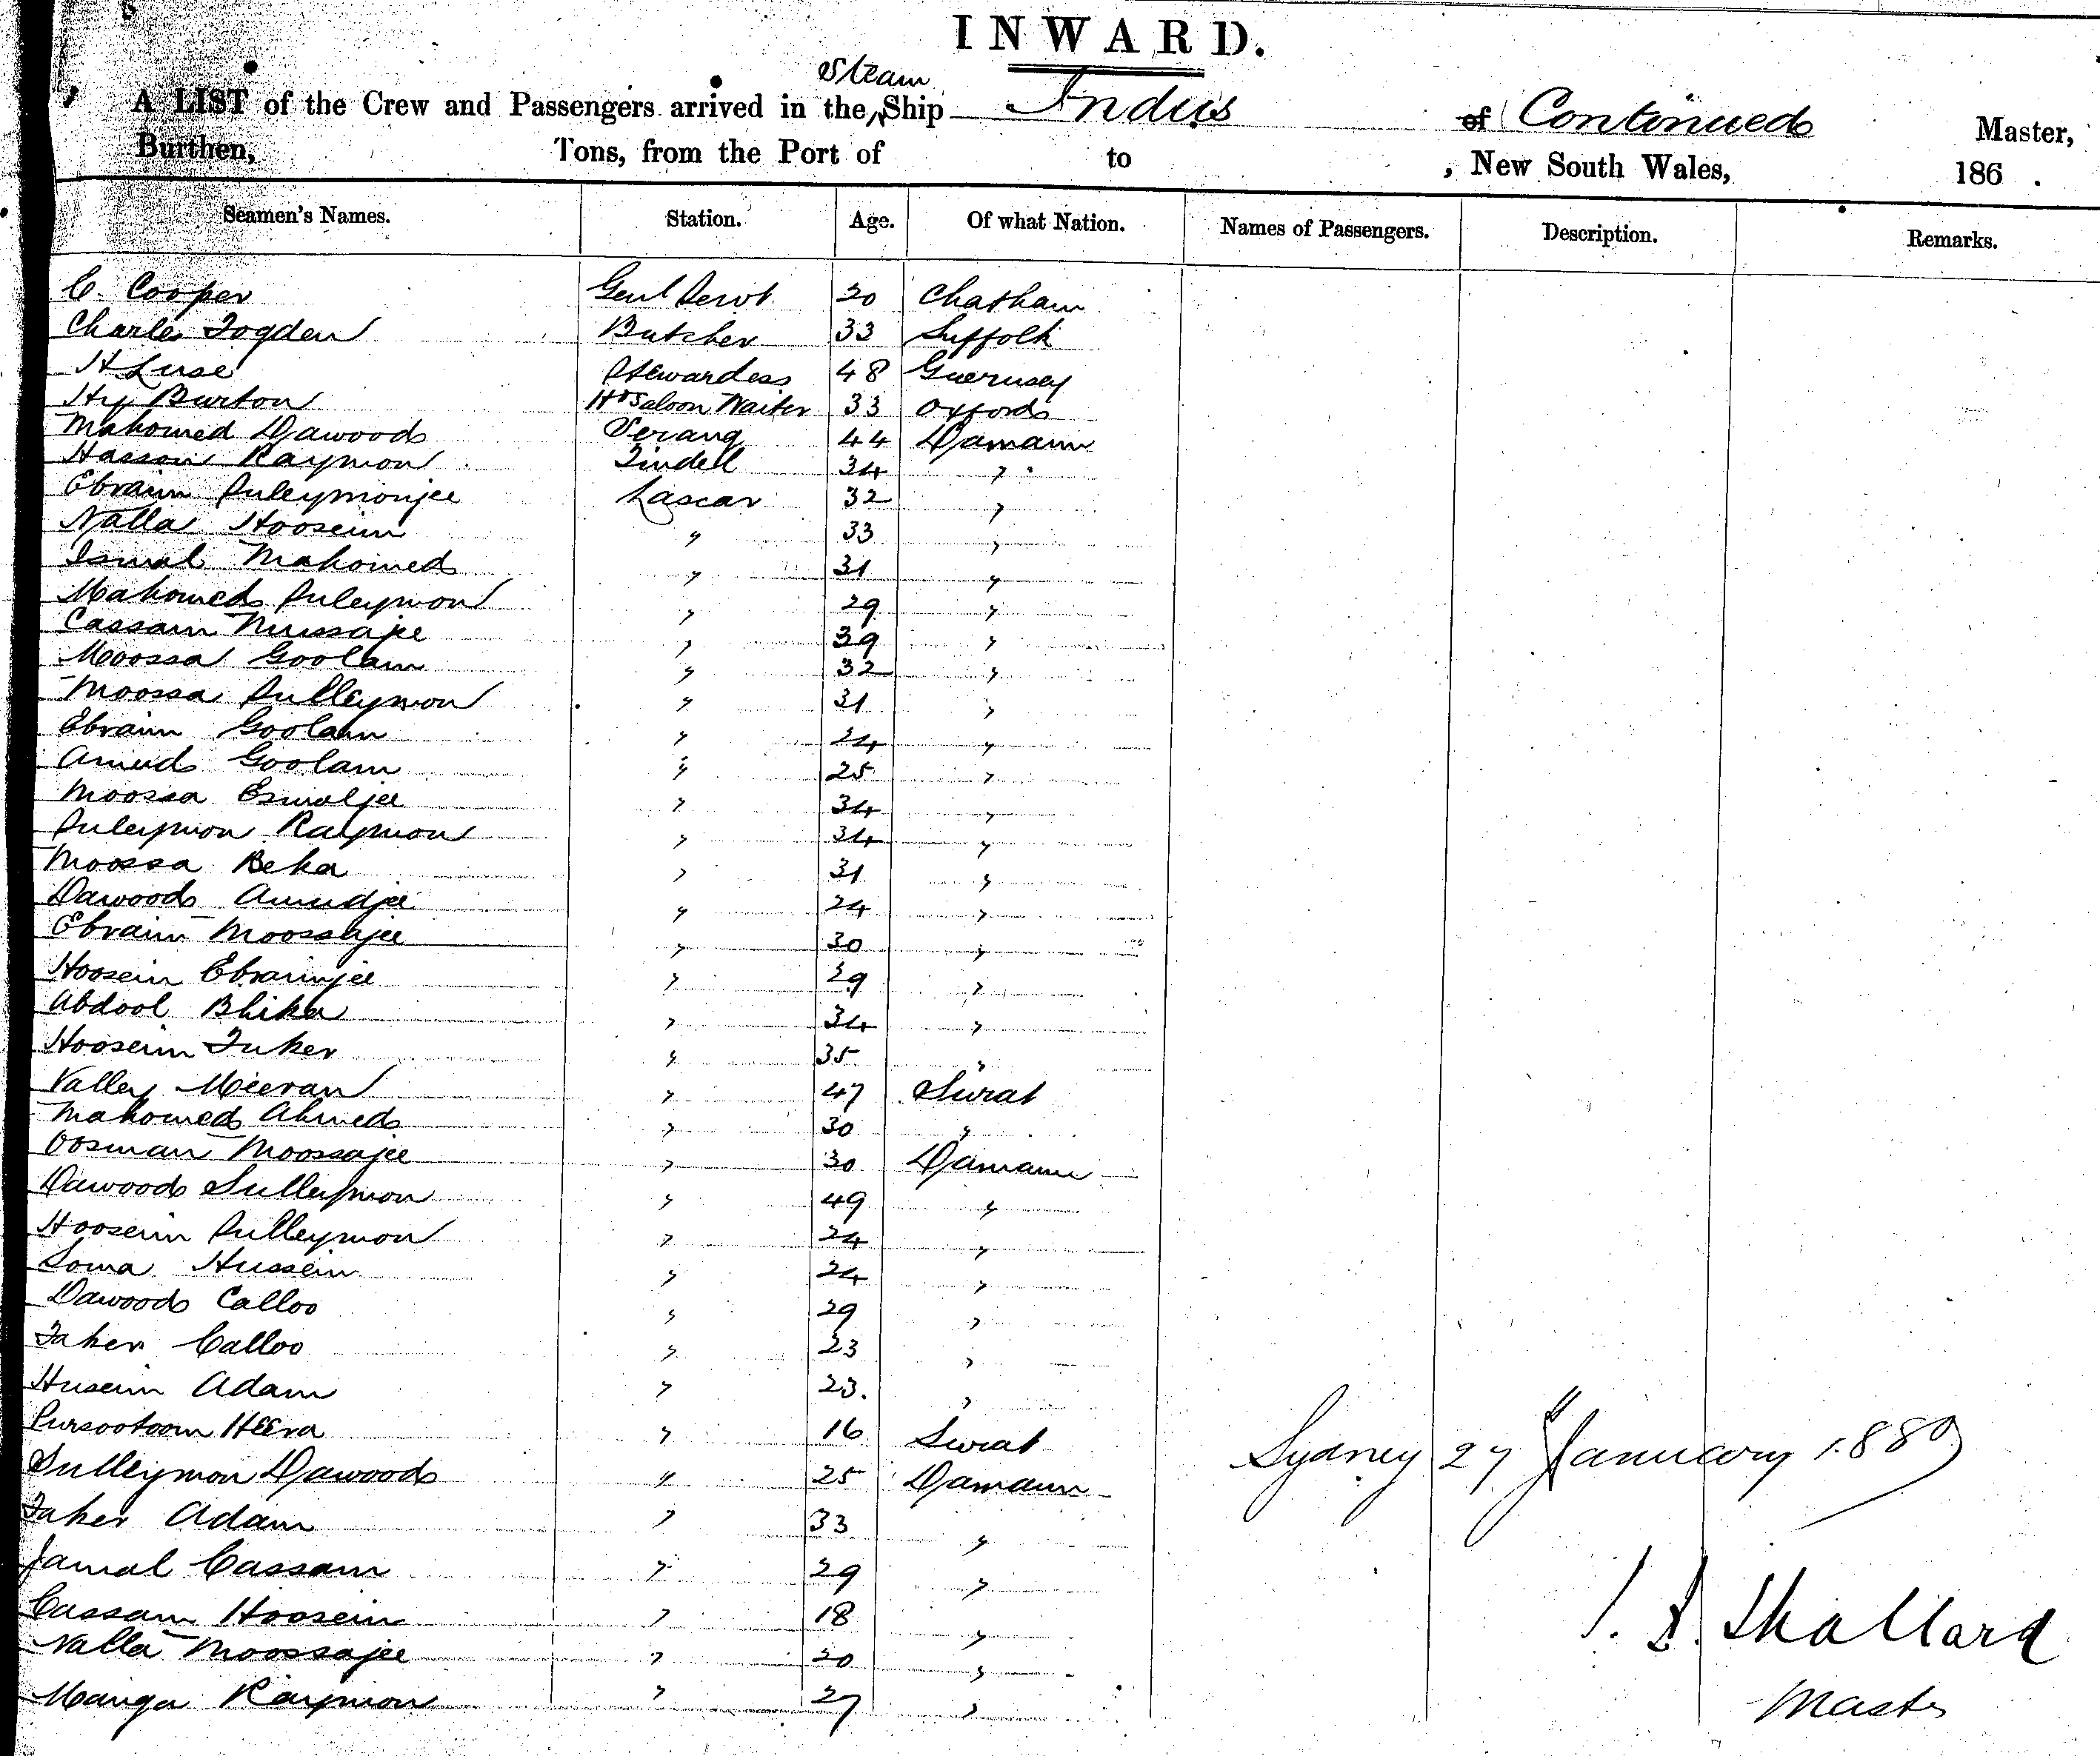 INWARD.
Steam
A LIST of the Crew and Passengers arrived in the Ship Indus of Continued Master,
Burthen, Tons, from the Port of to , New South Wales, 186 .
Seamen's Names. Station. Age. Of what Nation. Names of Passengers. Description. Remarks.
C. Cooper Genl Servt 20 Chatham
Charles Togden Butcher 33 Suffolk
H Luse Stewardess 48 Guernsey
Hy Burton Hd Saloon Waiter 33 Oxford
Mahomed Dawood Serang 44 Damaun
Hasson Raymon Tindell 34 "
Ebraim Suleymonjee Lascar 32 "
Nalla Hoosein " 33 "
Ismal Mahomed " 31 "
Mahomed Suleymon " 29 "
Cassam Mussajee " 39 "
Moossa Goolam " 32 "
Moossa Sulleymon " 31 "
Ebraim Goolam " 24 "
Amud Goolam " 25 "
Moossa Esmaljee " 34 "
Suleymon Raymon " 34 "
Moossa Beka " 31 "
Dawood Amudjee " 24 "
Ebraim Moossajee " 30 "
Hoosein Ebraimjee " 29 "
Abdool Bhika " 34 "
Hoosein Fuker " 35 "
Valley Meeran " 47 Surat
Mahomed Ahmed " 30 "
Oosman Moossajee " 30 Damaun
Dawood Sulleymon " 49 "
Hoosein Sulleymon " 24 "
Soma Hussein " 24 "
Dawood Calloo " 29 "
Faker Calloo " 23 "
Husein Adam " 23. "
Pursootoom Heera " 16 Surat
Sulleymon Dawood " 25 Damaun
Faker Adam " 33 "
Jamal Cassam " 29 "
Cassam Hoosein " 18 "
Nalla Moossajee " 20 "
Manga Raymon " 27 "
Sydney 27 January 1880
Shallard
Master